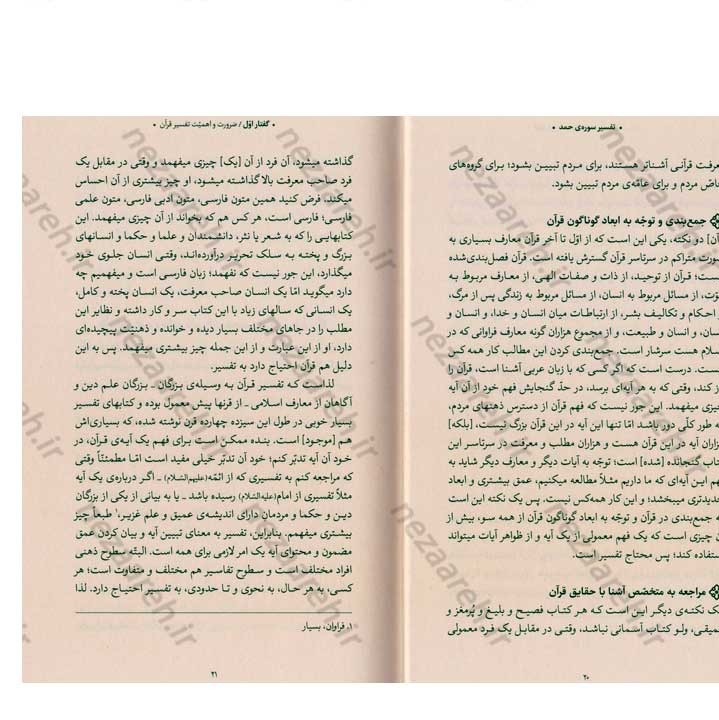 • تفسیر سوره‌ی حمد •
معرفت قرآنی آشناتر هستند، برای مردم تبیین بشود؛ برای گروههای
خاصّ مردم و برای عامّه‌ی مردم تبیین بشود.
جمع‌بندی و توجّه به ابعاد گوناگون قرآن
دو نکته، یکی این است که از اوّل تا آخر قرآن معارف بسیاری به
صورت متراکم در سرتاسر قرآن گسترش یافته است. قرآن فصل‌بندی‌شده
نیست؛ قرآن از توحید، از ذات و صفات الهی، از معارف مربوط به
نبوّت، از مسائل مربوط به انسان، از مسائل مربوط به زندگی پس از مرگ،
از احکام و تکالیف بشر، از ارتباطات میان انسان و خدا، و انسان و
انسان، و انسان و طبیعت، و از مجموع هزاران گونه معارف فراوانی که در
اسلام هست سرشار است. جمع‌بندی کردن این مطالب کار همه کس
نیست. درست است که اگر کسی که با زبان عربی آشنا است، قرآن را
باز کند، وقتی که به هر آیه‌ای برسد، در حدّ گنجایش فهم خود از آن آیه
چیزی میفهمد. این جور نیست که فهم قرآن از دسترس ذهنهای مردم،
به طور کلّی دور باشد امّا تنها این آیه در این قرآن بزرگ نیست، [بلکه]
هزاران آیه در این قرآن هست و هزاران مطلب و معرفت در سرتاسر این
کتاب گنجانده [شده] است؛ توجّه به آیات دیگر و معارف دیگر شاید به
فهم این آیه‌ای که ما داریم مثلاً مطالعه میکنیم، عمق بیشتری و ابعاد
جدیدتری میبخشد؛ و این کار همه‌کس نیست. پس یک نکته این است
که جمع‌بندی در قرآن و توجّه به ابعاد گوناگون قرآن از همه سو، بیش از
آن چیزی است که یک فهم معمولی از یک آیه و از ظواهر آیات میتواند
استفاده کند؛ پس محتاج تفسیر است.
مراجعه به متخصّص آشنا با حقایق قرآن
یک نکته‌ی دیگر این است که هر کتاب فصیح و بلیغ و پُرمغز و
عمیقی، ولو کتاب آسمانی نباشد، وقتی در مقابل یک فرد معمولی
۲۰
• گفتار اوّل / ضرورت و اهمیّت تفسیر قرآن •
گذاشته میشود، آن فرد از آن [یک] چیزی میفهمد و وقتی در مقابل یک
فرد صاحب معرفت بالا گذاشته میشود، او چیز بیشتری از آن احساس
میکند. فرض کنید همین متون فارسی، متون ادبی فارسی، متون علمی
فارسی؛ فارسی است، هر کس هم که بخواند از آن چیزی میفهمد. این
کتابهایی را که به شعر یا نثر، دانشمندان و علما و حکما و انسانهای
بزرگ و پخته به سلک تحریر درآورده‌اند، وقتی انسان جلوی خود
میگذارد، این جور نیست که نفهمد؛ زبان فارسی است و میفهمیم چه
دارد میگوید امّا یک انسان صاحب معرفت، یک انسان پخته و کامل،
یک انسانی که سالهای زیاد با این کتاب سر و کار داشته و نظایر این
مطلب را در جاهای مختلف بسیار دیده و خوانده و ذهنیّت پیچیده‌ای
دارد، او از این عبارت و از این جمله چیز بیشتری میفهمد. پس به این
دلیل هم قرآن احتیاج دارد به تفسیر.
لذاست که تفسیر قرآن به وسیله‌ی بزرگان ـ بزرگان علم دین و
آگاهان از معارف اسلامی ـ از قرنها پیش معمول بوده و کتابهای تفسیر
بسیار خوبی در طول این سیزده چهارده قرن نوشته شده، که بسیاری‌اش
هم [موجود] است. بنده ممکن است برای فهم یک آیه‌ی قرآن، در
خود آن آیه تدبّر کنم؛ خود آن تدبّر خیلی مفید است امّا مطمئنّاً وقتی
که مراجعه کنم به تفسیری که از ائمّه (علیهم‌السّلام) ـ اگر درباره‌ی یک آیه
مثلاً تفسیری از امام (علیه‌السّلام) رسیده باشد ـ یا به بیانی از یکی از بزرگان
دین و حکما و مردمان دارای اندیشه‌ی عمیق و علم غزیر،۱ طبعاً چیز
بیشتری میفهمم. بنابراین، تفسیر به معنای تبیین آیه و بیان کردن عمق
مضمون و محتوای آیه یک امر لازمی برای همه است. البتّه سطوح ذهنی
افراد مختلف است و سطوح تفاسیر هم مختلف و متفاوت است؛ هر
کسی، به هر حال، به نحوی و تا حدودی، به تفسیر احتیاج دارد. لذا
۱. فراوان، بسیار
۲۱
nezaareh.ir